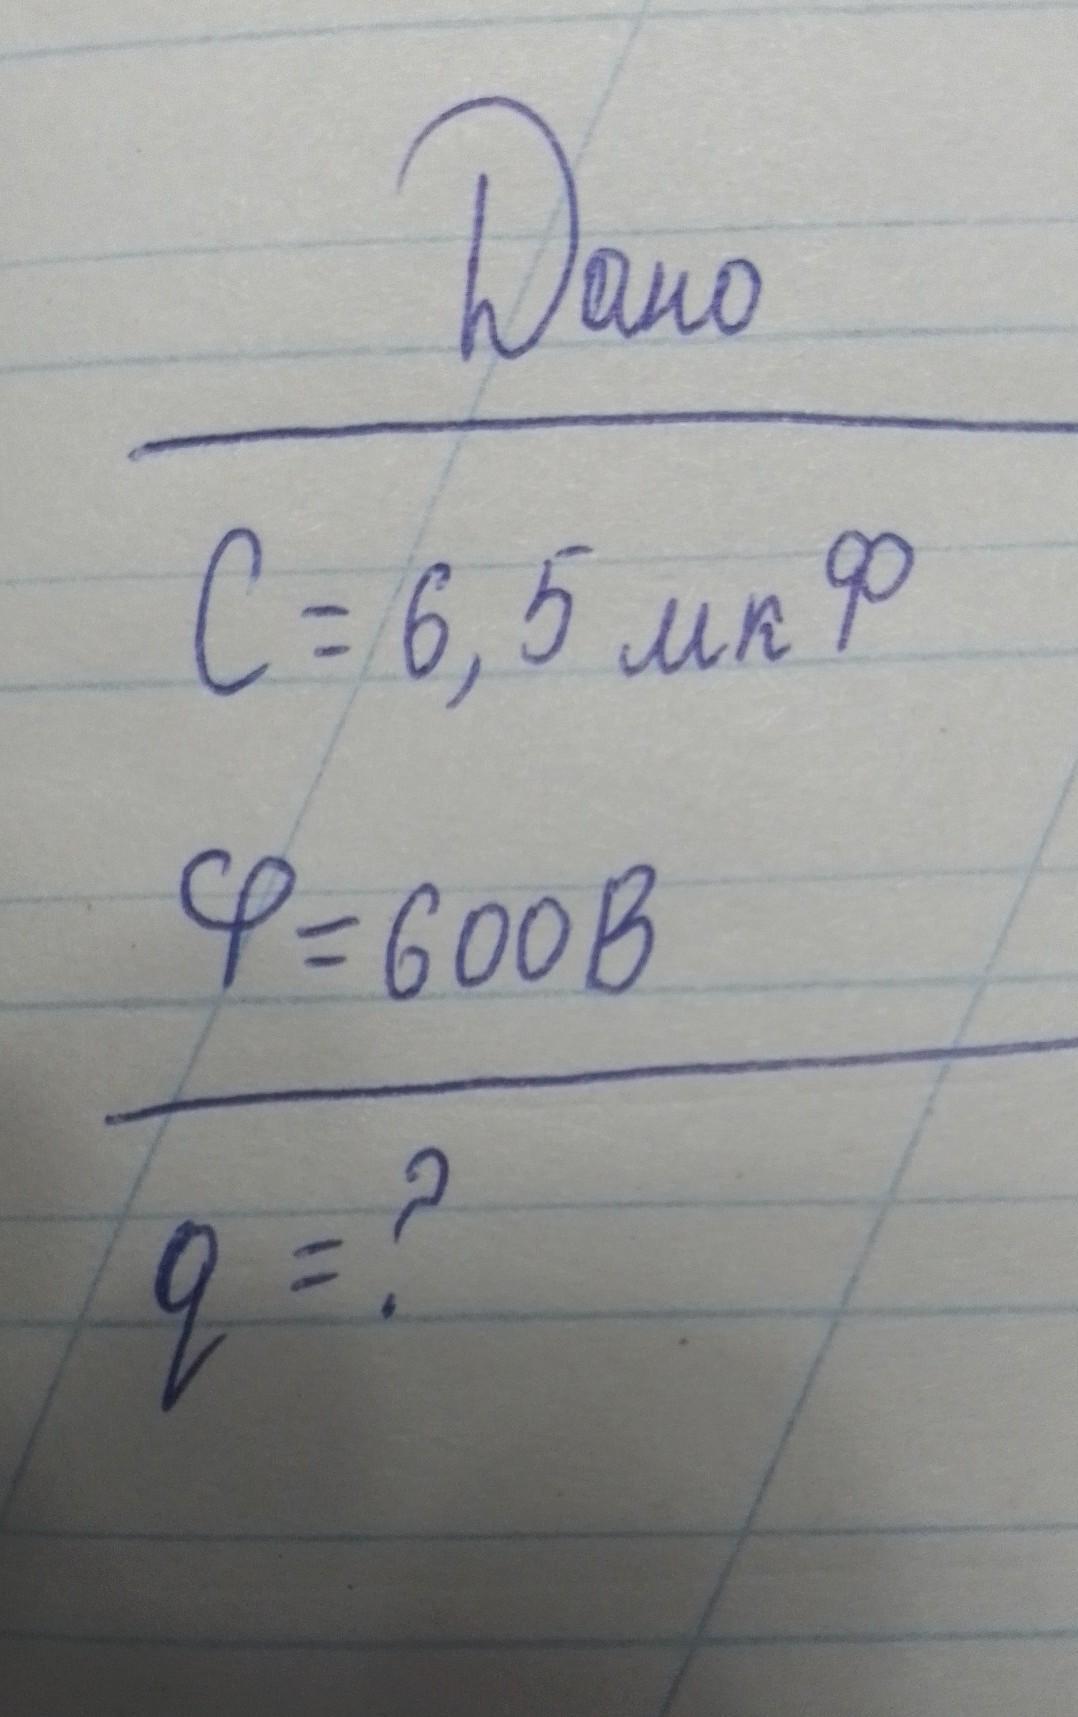 Дано
C = 6,5 мкФ
φ = 600 В
q = ?